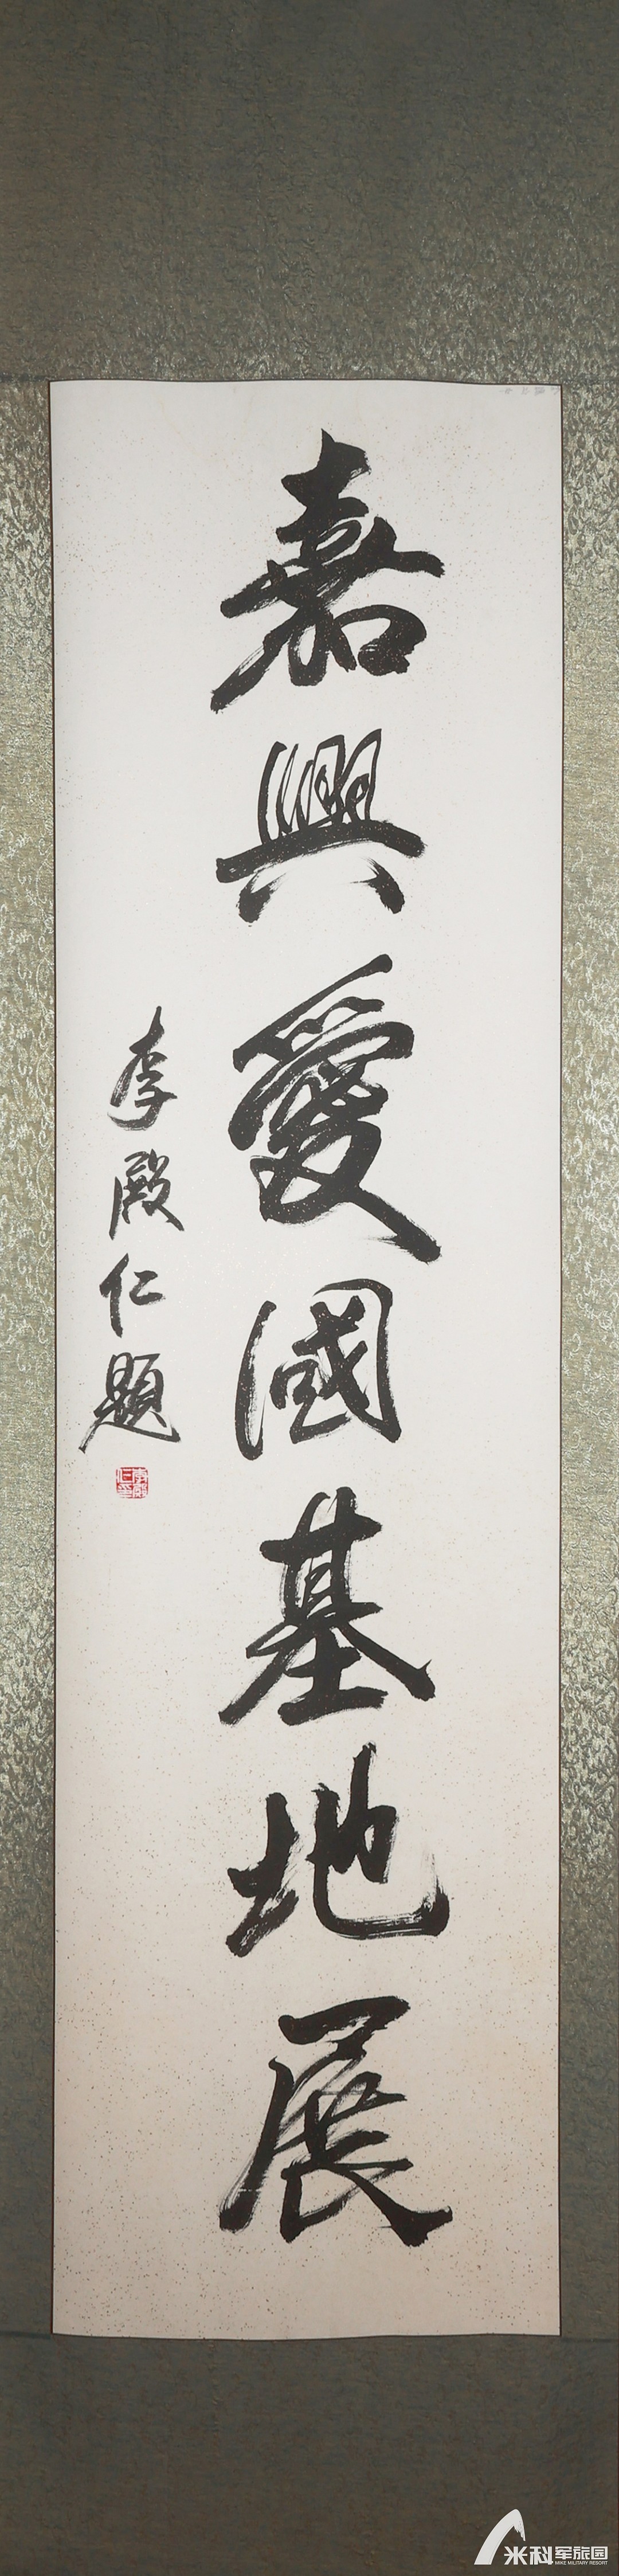 嘉興愛國基地展
李殿仁題
米科军旅园
MIKE MILITARY RESORT